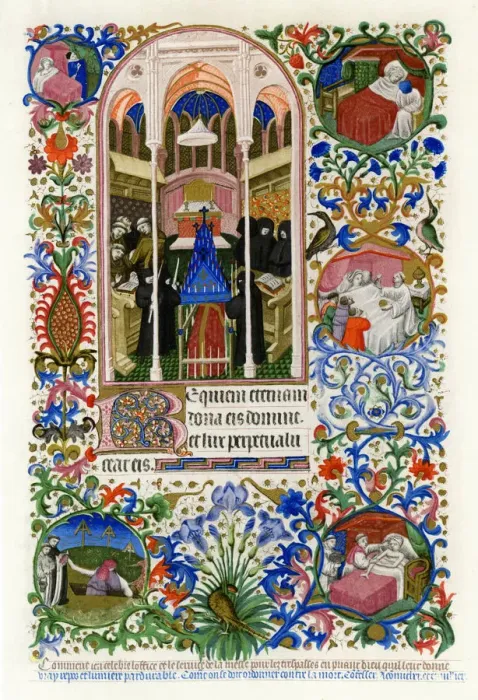 Requiem eternam
dona eis domine.
et lux perpetua lu
ceat eis.
Comment icy celebre loffice et le service de la messe pour les trespasses en priant dieu quil leur donne
vray repos et lumiere pardurable. Comment on se doit ordonner contre la mort.